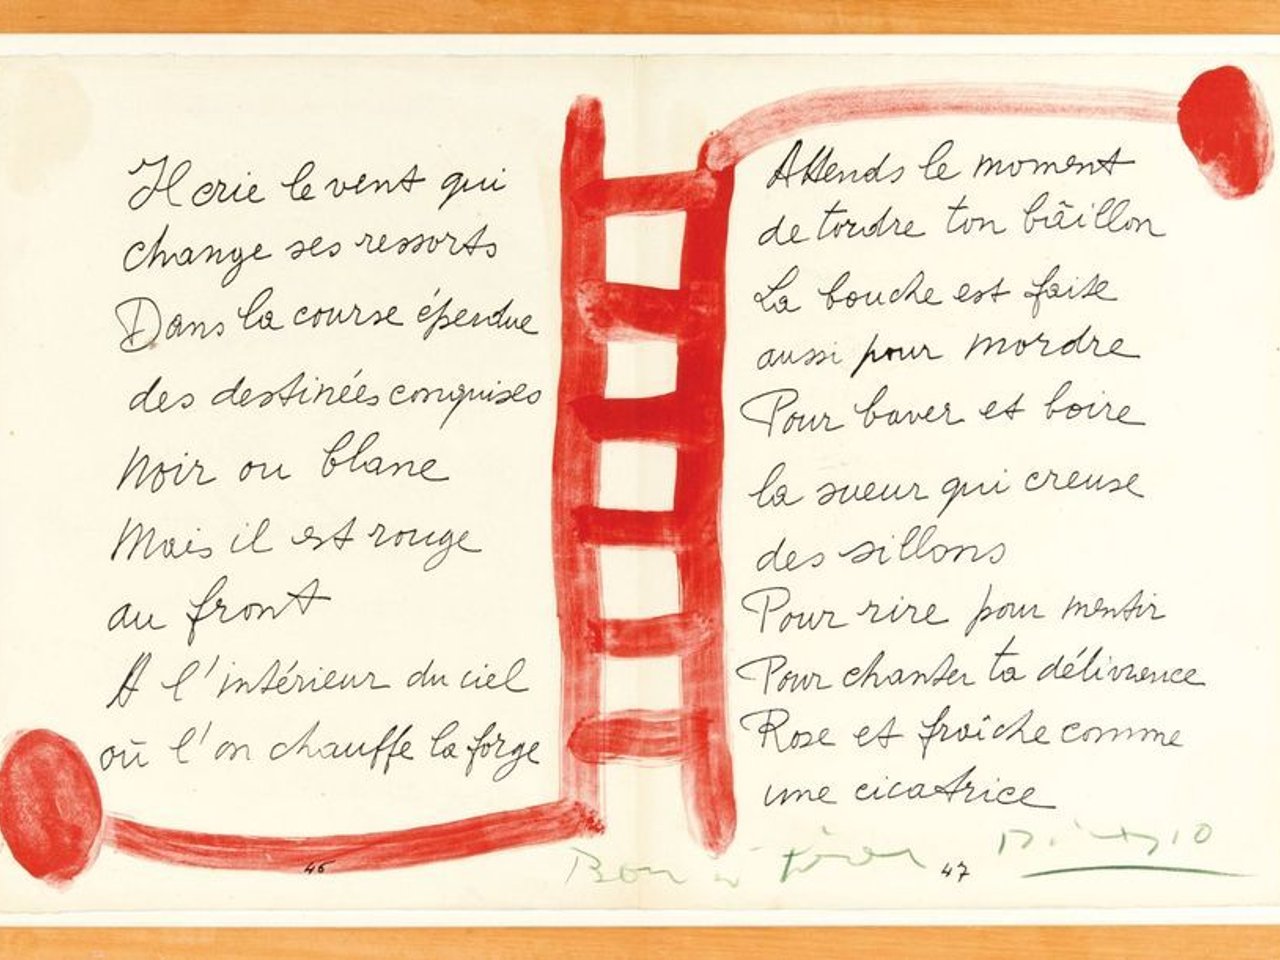 Il crie le vent qui
change ses ressorts
Dans la course éperdue
des destinées conquises
Noir ou blanc
Mais il est rouge
au front
A l'intérieur du ciel
où l'on chauffe la forge
46
Attends le moment
de tordre ton bâillon
La bouche est faite
aussi pour mordre
Pour baver et boire
la sueur qui creuse
des sillons
Pour rire pour mentir
Pour chanter ta délivrance
Rose et fraîche comme
une cicatrice
Bon à tirer Picasso
47